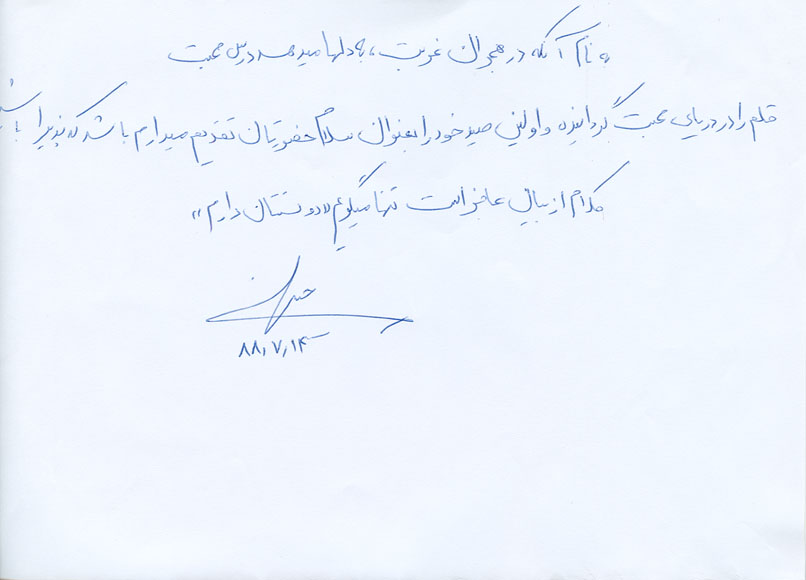 به نام آنکه در هجران غربت، به دلها میدهد درس محبت
قلم را در دریای محبت گردانیده و اولین صید خود را بعنوان سلام حضورتان تقدیم میدارم باشد که پذیرا باشید
کلام از بیان عاجز است تنها میگویم «دوستتان دارم»
۸۸٫۷٫۱۴